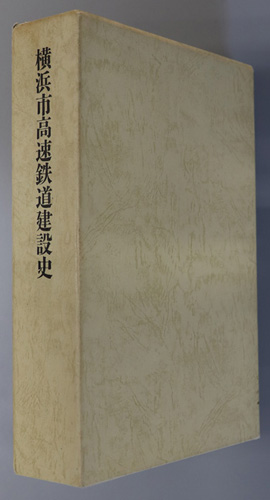 横浜市高速鉄道建設史